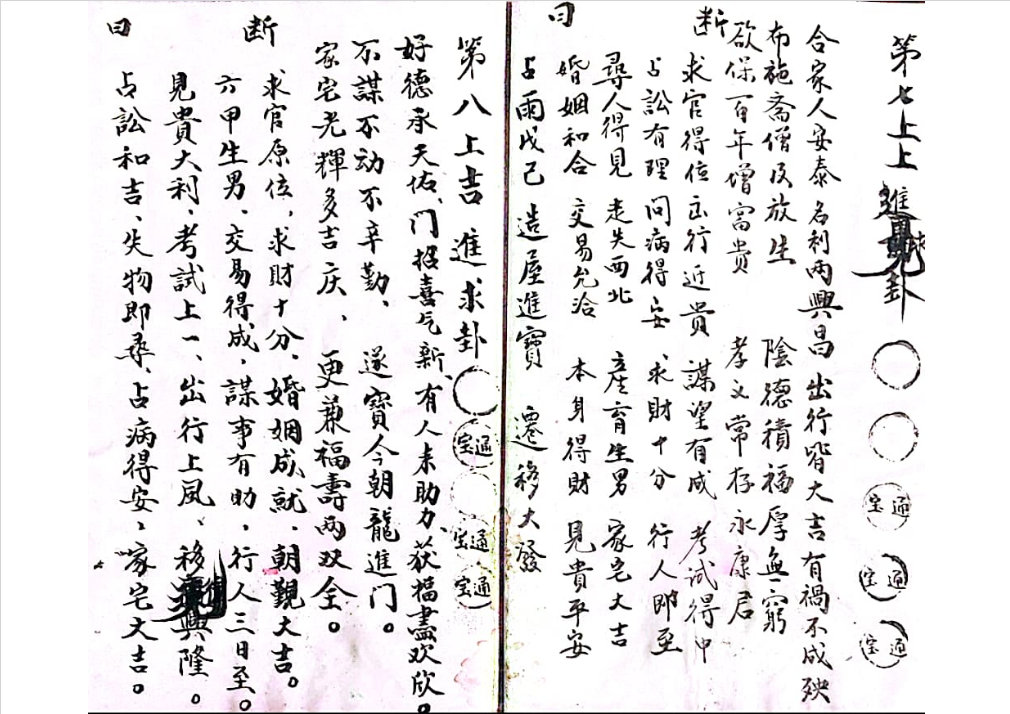 第七上上進求卦
通宝
通宝
通宝
合家人安泰 名利兩興昌 出行皆大吉 有禍不成殃
布施斋僧及放生 陰德積福厚無窮
欲保百年增富貴 孝义常存永康君
断曰
求官得位 出行近貴 謀望有成 考试得中
占訟有理 问病得安 求財十分 行人即至
尋人得見 走失西北 產育生男 家宅大吉
婚姻和合 交易允洽 本身得財 見貴平安
占雨戊己 造屋進寶 遷移大發
第八上吉 進求卦
通宝
通宝
通宝
好德承天佑、门招喜气新、有人来助力、获福盡欢欣。
不謀不动不辛勤、 遂寶今朝龍進门。
家宅光輝多吉庆、 更兼福壽両双全。
断曰
求官原位、求財十分、婚姻成就、朝覲大吉。
六甲生男、交易得成、謀事有助、行人三日至。
見貴大利、考試上一、出行上風、移徙興隆。
占訟和吉、失物即尋、占病得安、家宅大吉。